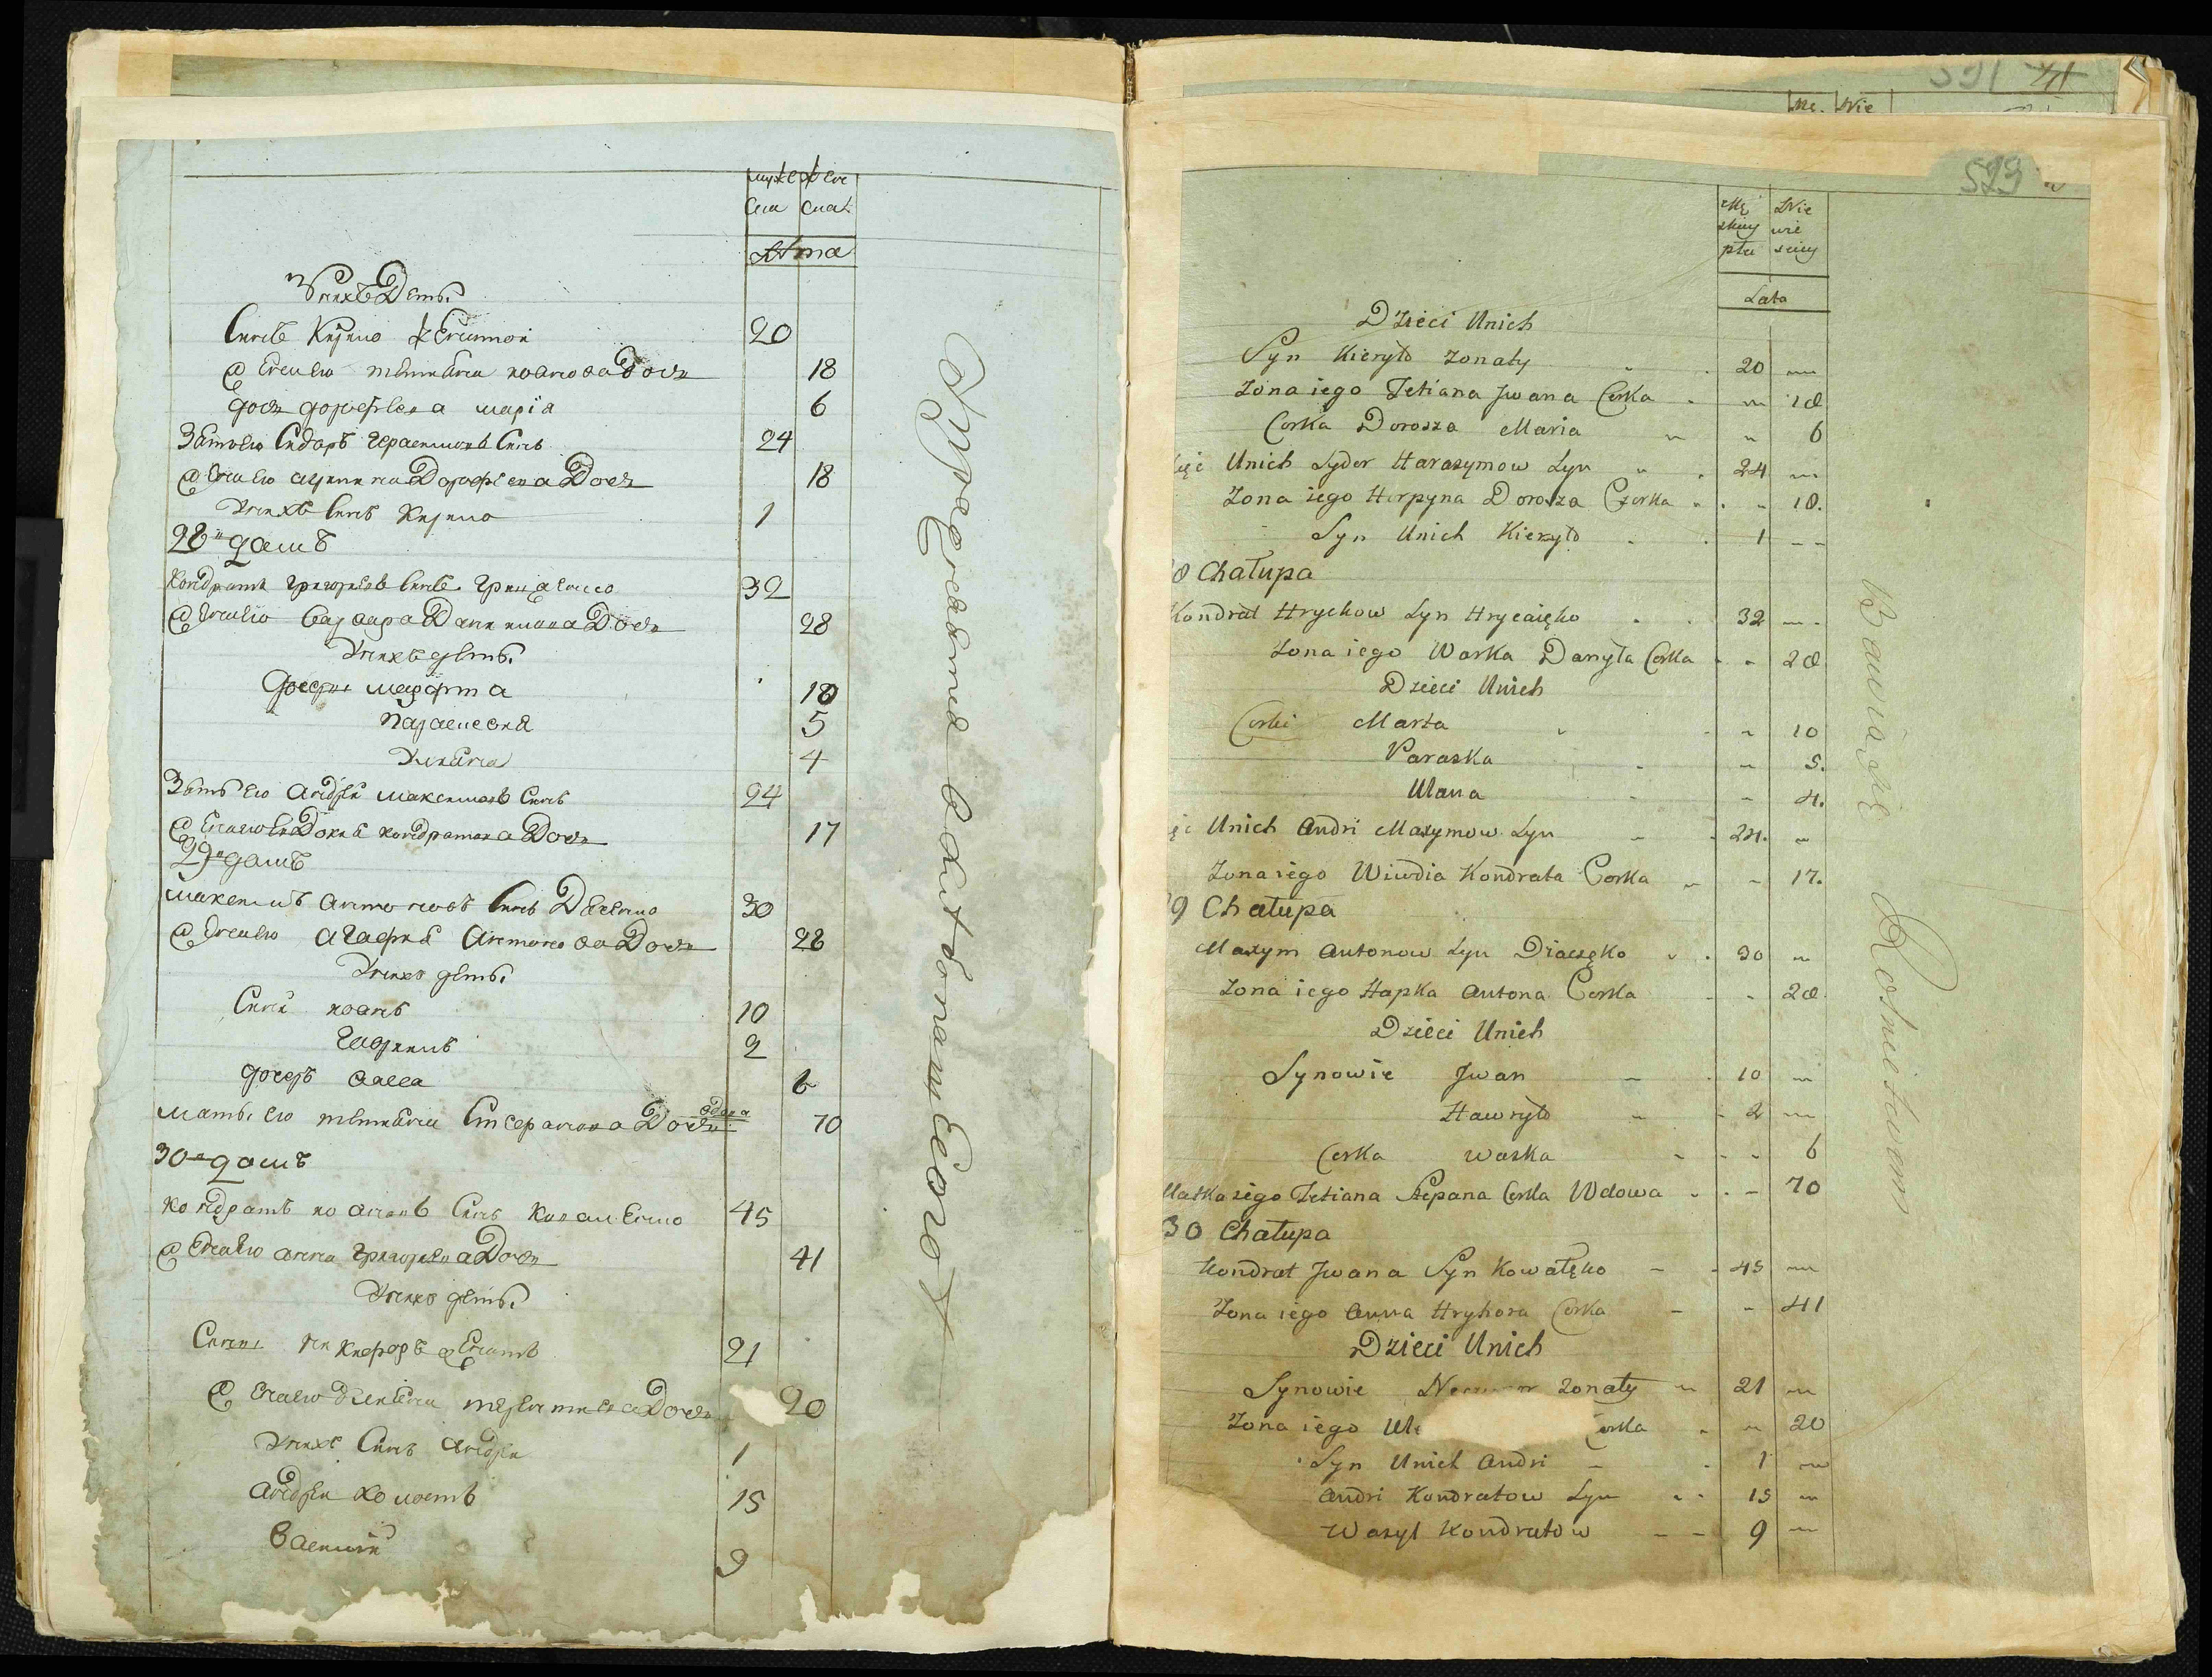 муже жен
ска скаѧ
лѣта
У нихъ Дети
Синъ Кирило Женатой
Жена Ево татиана иванова Дочь 18
20
дочь дорофеева марія 6
Зять Ево Сидоръ Герасимовъ Синъ 24
Жена Ево агрипина Дорофеева Дочь 18
У нихъ Синъ Кирило 1
28й домъ
Кондратъ григорьевъ Синъ Гриценко 32
Жена Ево варвара Данилова Дочь 28
У нихъ дети
Дочери марфа 10
параскевия 5
Улиана 4
Зять Ево андрей максимовъ Синъ 24
Жена Ево Евдокия кондратова Дочь 17
29й домъ
максимъ антоновъ Синъ Дяченко 30
Жена Ево агафия антонова Дочь 28
У нихъ дети
Сини иванъ 10
гаврило 2
дочерь васса 6
мать Ево татиана Степанова Дочь вдова 70
30й домъ
кондратъ ивановъ Синъ коваленко 45
Жена Ево анна григорьева Дочь 41
У нихъ дети
Сини никифоръ женатъ 21
Жена Ево Улиана Дочь 20
У нихъ Синъ андрей 1
андрей холостъ 15
василий 9
529
Mę Nie
skiey wie
płci sciey
Lata
Dzieci Unich
Syn Kieryło żonaty 20
Zona iego Tetiana Jwana Corka 18
Corka Dorosza Maria 6
ięć Unich Sydor Harasymow Syn 24
Zona iego Horpyna Dorosza Czorka 18.
Syn Unich Kieryło 1
8 Chałupa
Kondrat Hrychow Syn Hrycaięko 32
Zona iego Warka Danyła Corka 28
Dzieci Unich
Corki Marta 10
Paraska 5.
Ulana 4.
ęć Unich Andri Maxymow Syn 24.
Zona iego Wiwdia Kondrata Corka 17.
9 Chałupa
Maxym Antonow Syn Diaczęko 30
Zona iego Hapka Antona Corka 28
Dzieci Unich
Synowie Jwan 10
Hawryło 2
Corka Waska 6
Matka iego Tetiana Stepana Corka Wdowa 70
30 Chałupa
Kondrat Jwana Syn Kowalęko 45
Zona iego Anna Hryhora Corka 41
Dzieci Unich
Synowie żonaty 21
Zona iego Ul orka 20
Syn Unich Andri 1
Andri Kondratow Syn 15
Wasyl Kondratow 9
Bawią się Rolnictwem